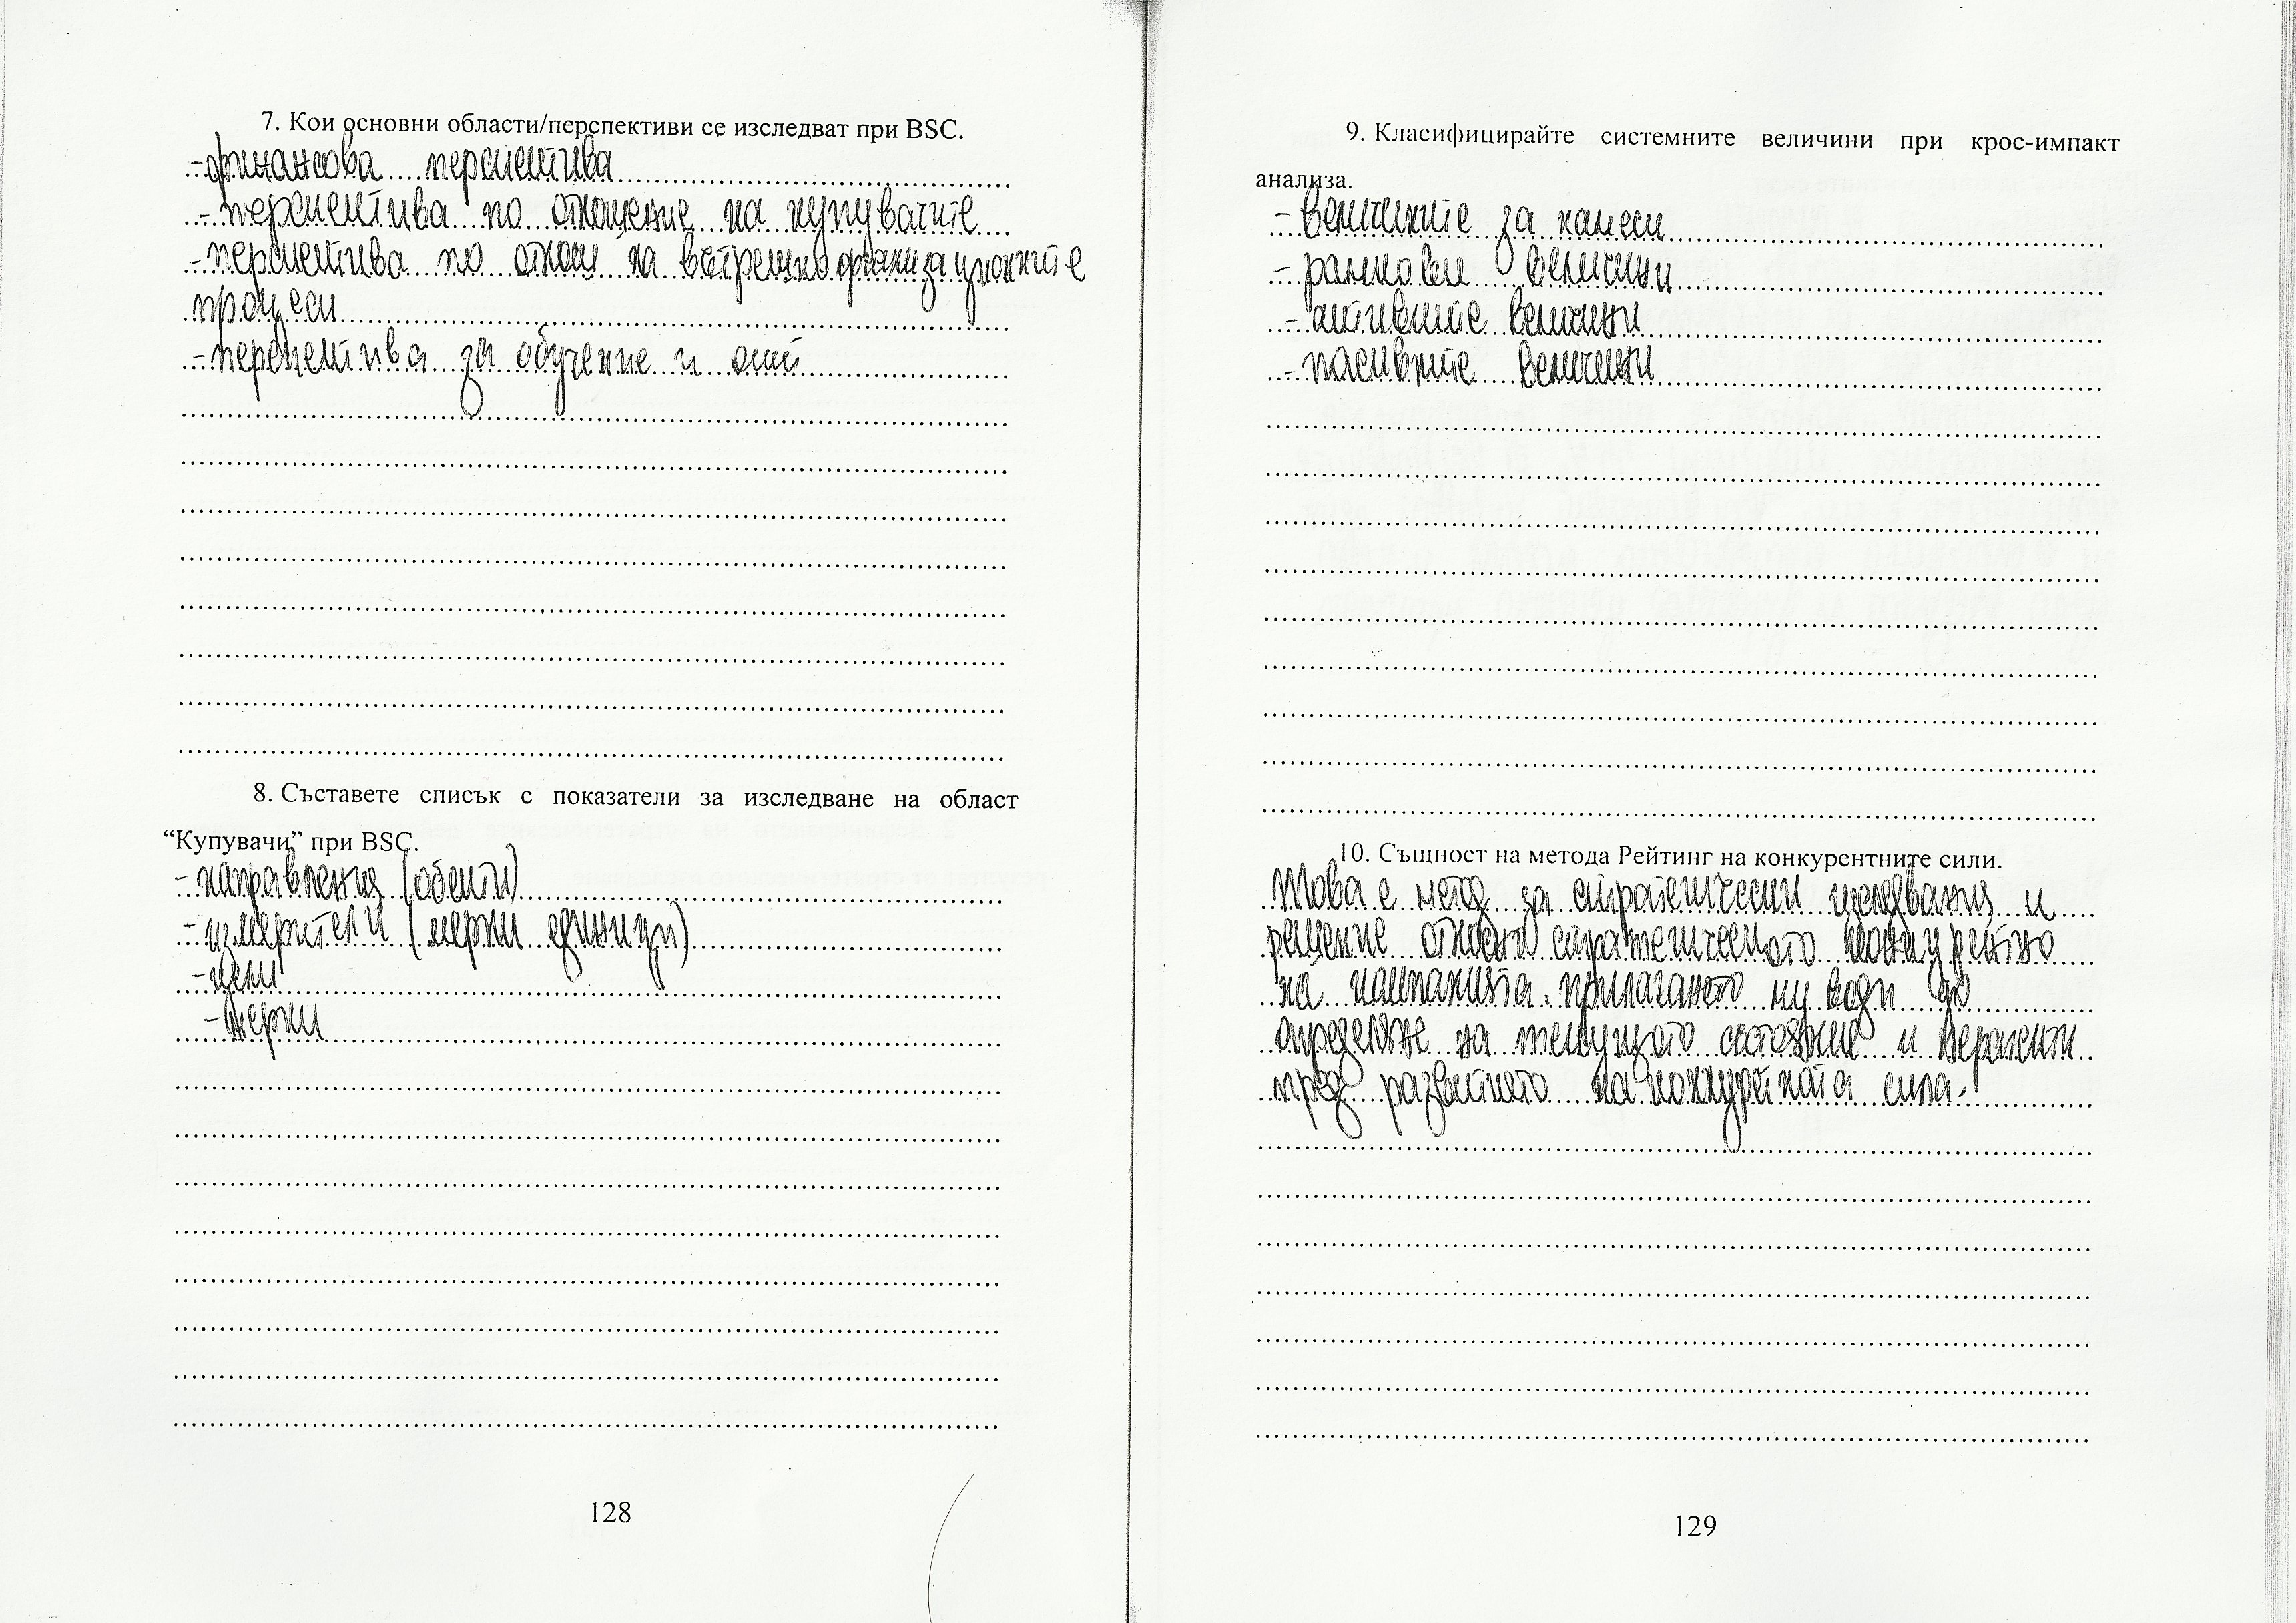 7. Кои основни области/перспективи се изследват при BSC.
- финансова перспектива
- перспектива по отношение на купувачите
- перспектива по отнош на вътрешно организационните
процеси
- перспектива за обучение и
8. Съставете списък с показатели за изследване на област
“Купувачи” при BSC.
- направления (обекти)
- измерители (мерни единици)
- цели
- мерки
128
9. Класифицирайте системните величини при крос-импакт
анализа.
- величините за намеси
- рамкови величини
- активните величини
- пасивните величини
10. Същност на метода Рейтинг на конкурентните сили.
Това е метод за стратегически изследвания и
решение относно стратегическото
на компанията. прилагането му води до
определяне на текущото състояние и
пред развитието на конкурентната сила.
129